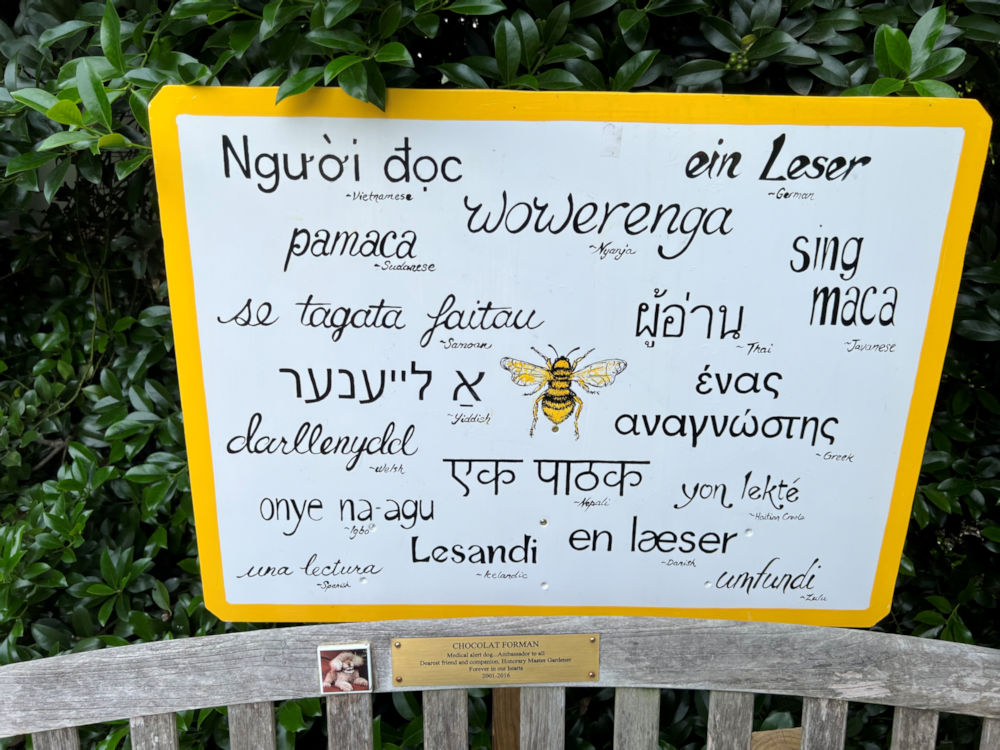 Người đọc
~Vietnamese
ein Leser
~German
wowerenga
~Nyanja
pamaca
~Sudanese
sing
maca
~Javanese
se tagata faitau
~Samoan
ผู้อ่าน
~Thai
אַ לייענער
~Yiddish
ένας
αναγνώστης
~Greek
darllenydd
~Welsh
एक पाठक
~Nepali
yon lekté
~Haitian Creole
onye na-agu
~Igbo
Lesandi
~Icelandic
en læser
~Danish
una lectura
~Spanish
umfundi
~Zulu
CHOCOLAT FORMAN
Medical alert dog...Ambassador to all
Dearest friend and companion, Honorary Master Gardener
Forever in our hearts
2001-2016